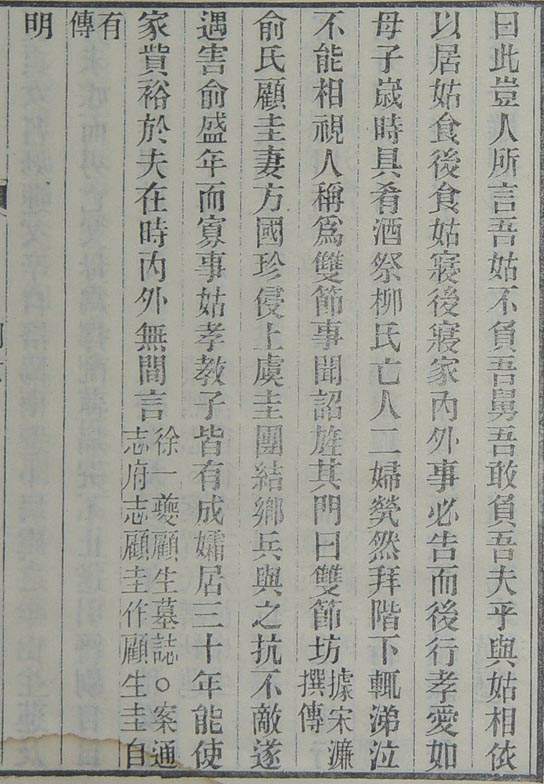 曰此豈人所言吾姑不負吾舅吾敢負吾夫乎與姑相依
以居姑食後食姑寢後寢家內外事必告而後行孝愛如
母子歲時具肴酒祭柳氏亡人二婦煢然拜階下輒涕泣
不能相視人稱爲雙節事聞詔旌其門曰雙節坊據宋濂
撰傳
俞氏顧圭妻方國珍侵上虞圭團結鄉兵與之抗不敵遂
遇害俞盛年而寡事姑孝教子皆有成孀居三十年能使
家貲裕於夫在時內外無間言徐一夔顧生墓誌○案通
志府志顧圭作顧生圭自
有
傳
明